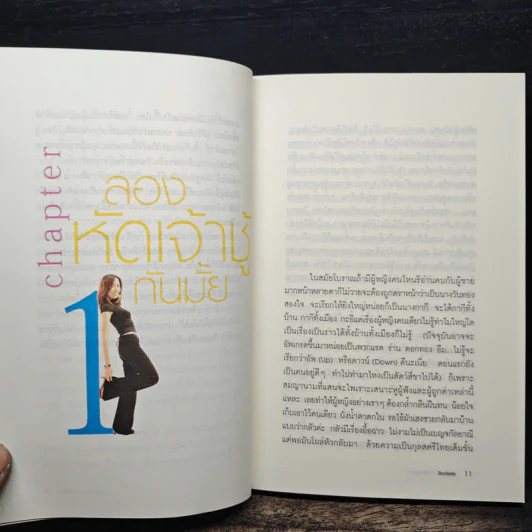 chapter
1
ลอง
หัดเจ้าชู้
กันมั้ย
ในสมัยโบราณถ้ามีผู้หญิงคนไหนริอ่านคบกับผู้ชาย
มากหน้าหลายตาก็ไม่วายจะต้องถูกตราหน้าว่าเป็นนางวันทอง
สองใจ จะเรียกให้ยิ่งใหญ่หน่อยก็เป็นนางกากี จะได้กากีทั้ง
บ้าน กากีทั้งเมือง กะอีแค่เรื่องผู้หญิงคนเดียวไม่รู้ทำไมใหญ่โต
เป็นเรื่องเป็นราวได้ทั้งบ้านทั้งเมืองก็ไม่รู้ (ปัจจุบันอาจจะ
อัพเกรดขึ้นมาหน่อยเป็นพวกแรด ร่าน ดอกทอง อืม...ไม่รู้จะ
เรียกว่าอัพ (Up) หรือดาวน์ (Down) ดีนะเนี่ย ตอนแรกยัง
เป็นคนอยู่ดีๆ ทำไปทำมาไหงเป็นสัตว์สี่ขาไปได้) ก็เพราะ
สมญานามที่แสนจะไพเราะเสนาะหูผู้ฟังและผู้ถูกด่าเหล่านี้
แหละ เลยทำให้ผู้หญิงอย่างเราๆ ต้องกล้ำกลืนฝืนทน น้อยใจ
เก็บเอาไว้คนเดียว นั่งน้ำตาตกใน รอไอ้ผัวเฮงซวยกลับมาบ้าน
แบบว่ากลัวค่ะ กลัวมีเรื่องอื้อฉาว ไม่งามไม่เป็นเบญจกัลยาณี
แต่พอมันโผล่หัวกลับมา ด้วยความเป็นกุลสตรีไทยเต็มขั้น
11